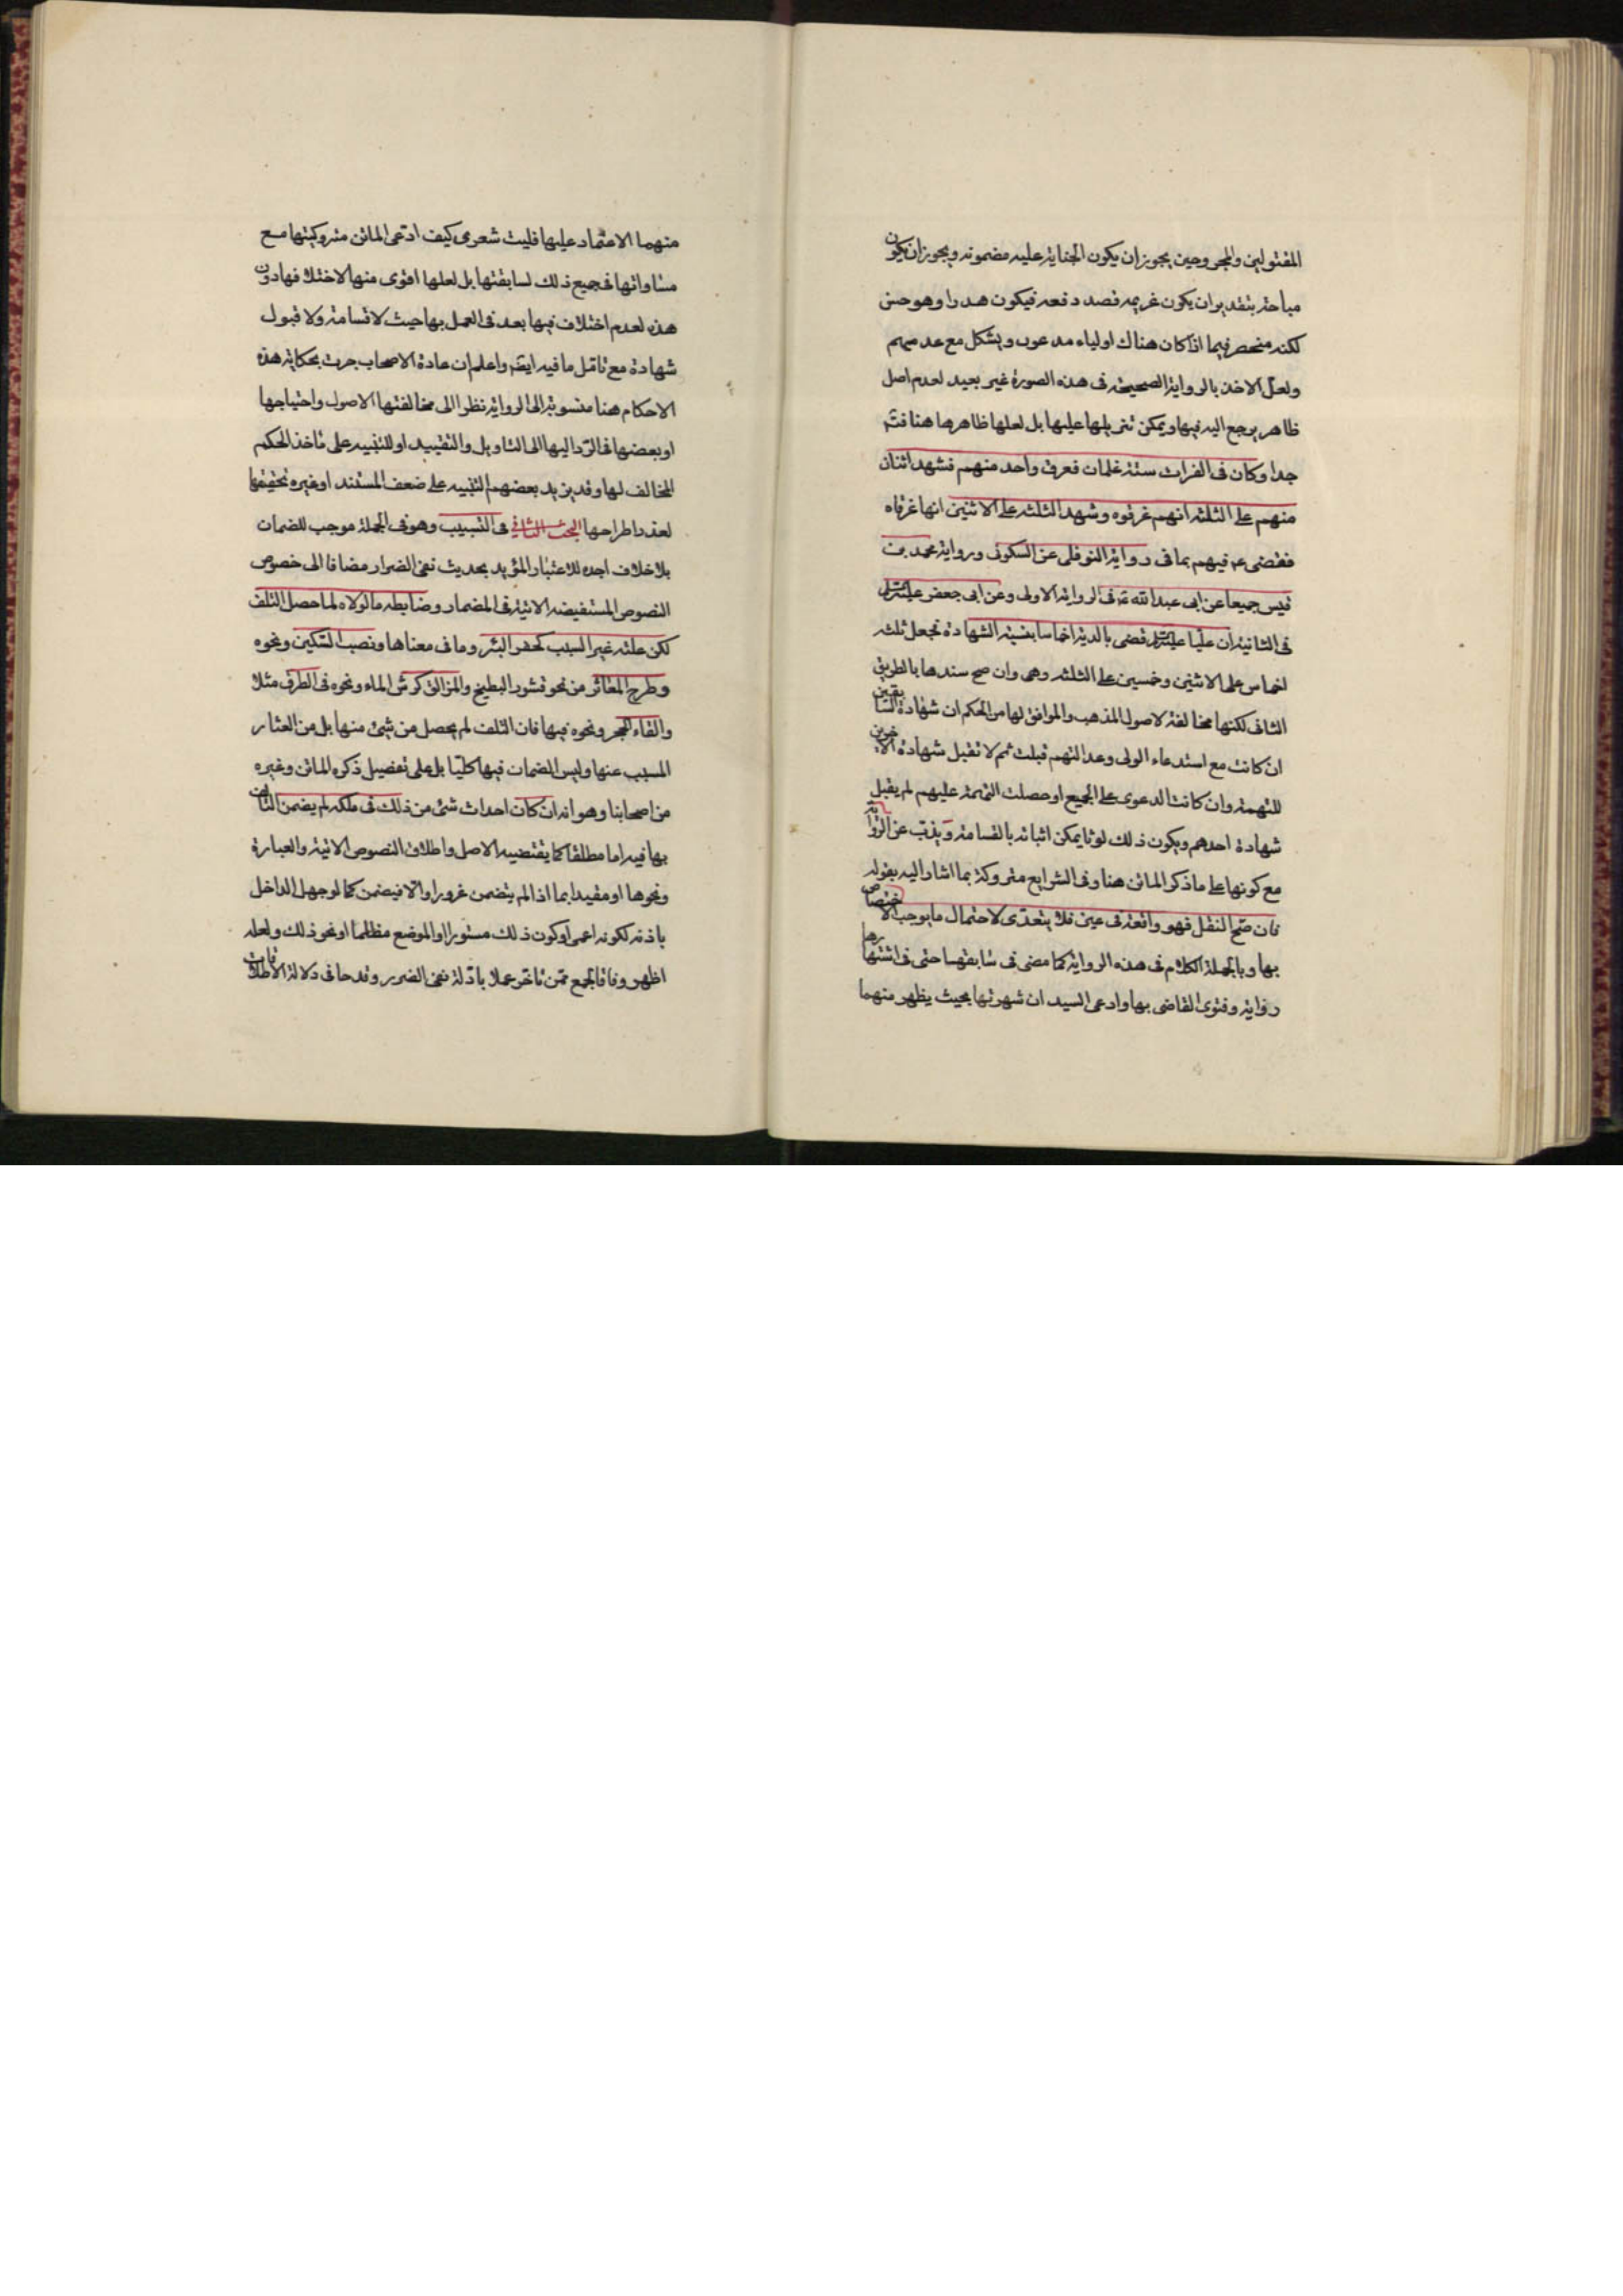 المقتولين والمجروحين يجوز ان يكون الجناية عليه مضمونه ويجوز ان يكون
مباحة بتقدير ان يكون غريمه قصد دفعه فيكون هدرا وهو حسن
لكنه منحصر فيما اذا كان هناك اولياء مدعون ويشكل مع عدمهم
ولعل الاخذ بالرواية الصحيحة فى هذه الصورة غير بعيد لعدم اصل
ظاهر يرجع اليه فيها ويمكن تنزيلها عليها بل لعلها ظاهرها هنا فتم
جدا وكان فى الفرات ستة غلمان فغرق واحد منهم فشهد اثنان
منهم على الثلثه انهم غرقوه وشهد الثلثه على الاثنين انها غرقاه
فقضى ع فيهم بما فى رواية النوفلى عن السكونى ورواية محمد بن
قيس جميعا عن ابى عبد الله ع فى الرواية الاولى وعن ابى جعفر عليه السلام
فى الثانية ان عليا عليه السلام قضى بالدية اخماسا بنسبة الشهادة فجعل ثلثه
اخماس على الاثنين وخمسين على الثلثه وهى وان صح سندها بالطريق
الثانى لكنها مخالفة لاصول المذهب والموافق لها من الحكم ان شهادة السابقين
ان كانت مع استدعاء الولى وعدالتهم قبلت ثم لا تقبل شهادة الاخرين
للتهمة وان كانت الدعوى على الجميع او حصلت التهمة عليهم لم يقبل
شهادة احدهم ويكون ذلك لوثا يمكن اثباته بالقسامة ويذب عن الرواية
مع كونها على ما ذكر الماتن هنا وفى الشرايع متروكة بما اشار اليه بقوله
فان صح النقل فهو واقعة فى عين فلا يتعدى لاحتمال ما يوجب الاختصاص
بها وبالجملة الكلام فى هذه الرواية كما مضى فى سابقها حتى فى اشتهارها
رواية وفتوى القاضى بها وادعى السيد ان شهرتها بحيث يظهر منهما
منهما الاعتماد عليها فليت شعرى كيف ادعى الماتن متروكيتها مع
مساواتها فى جميع ذلك لسابقتها بل لعلها اقوى منها لاختلافها دون
هذه لعدم اختلاف فيها بعد فى العمل بها حيث لا قسامة ولا قبول
شهادة مع تامل ما فيه ايضا واعلم ان عادة الاصحاب جرت بحكاية هذه
الاحكام هنا منسوبة الى الرواية نظرا الى مخالفتها الاصول واحتياجها
او بعضها فى الرد اليها الى التاويل والتقييد او للتنبيه على ماخذ الحكم
المخالف لها وقد يزيد بعضهم التنبيه على ضعف المستند او غيره تحقيقا
لعذر اطراحها البحث الثانى فى التسبيب وهو فى الجملة موجب للضمان
بلا خلاف اجده للاعتبار المؤيد بحديث نفى الضرار مضافا الى خصوص
النصوص المستفيضه الاتية فى المضمار وضابطه ما لولاه لما حصل التلف
لكن علته غير السبب كحفر البئر وما فى معناها ونصب السكين ونحوه
وطرح المعاثر من نحو قشور البطيخ والمزالق كرش الماء ونحوه فى الطرق مثلا
والقاء الحجر ونحوه فيها فان التلف لم يحصل من شئ منها بل من العثار
المسبب عنها وليس الضمان فيها كليا بل على تفصيل ذكره الماتن وغيره
من اصحابنا وهو انه ان كان احداث شئ من ذلك فى ملكه لم يضمن التالف
بها فيه اما مطلقا كما يقتضيه الاصل واطلاق النصوص الاتية والعبارة
ونحوها او مقيدا بما اذا لم يتضمن غرورا والا فيضمن كما لو جهل الداخل
باذنه لكونه اعمى او كون ذلك مستورا او الموضع مظلما او نحو ذلك ولعله
اظهر وفاقا لجمع ممن تاخر عملا بادلة نفى الضرر وقدحا فى دلالة الاطلاقات